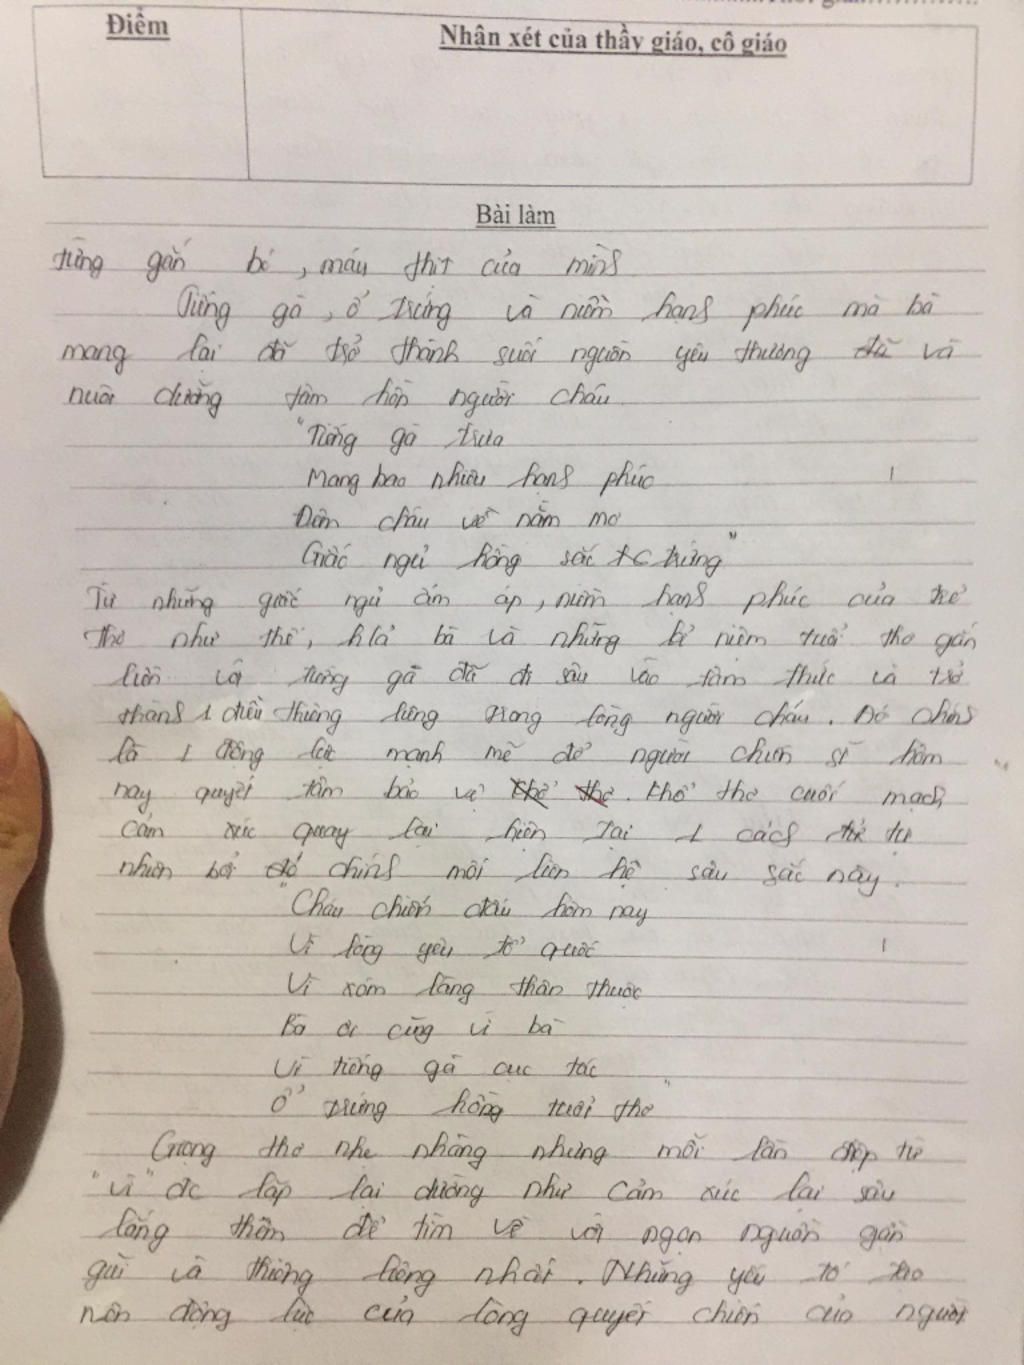 Điểm
Nhận xét của thầy giáo, cô giáo
Bài làm
từng gắn bó, máu thịt của mình
Tiếng gà, ổ trứng và niềm hạnh phúc mà bà
mang lại đã trở thành suối nguồn yêu thương và
nuôi dưỡng tâm hồn người cháu
"Tiếng gà trưa
Mang bao nhiêu hạnh phúc
Đêm cháu về nằm mơ
Giấc ngủ hồng sắc trứng"
Từ những giấc ngủ ấm áp, niềm hạnh phúc của trẻ
thơ như thế, bà và những kỉ niệm tuổi thơ gắn
liền với tiếng gà đã đi sâu vào tâm thức và trở
thành 1 điều thiêng liêng trong lòng người cháu. Đó chính
là 1 động lực mạnh mẽ để người chiến sĩ hôm
nay quyết tâm bảo vệ. Khổ thơ cuối mạch
cảm xúc quay lại hiện tại 1 cách tự
nhiên bởi chính mối liên hệ sâu sắc này.
"Cháu chiến đấu hôm nay
Vì lòng yêu tổ quốc
Vì xóm làng thân thuộc
Bà ơi cũng vì bà
Vì tiếng gà cục tác
Ổ trứng hồng tuổi thơ"
Giọng thơ nhẹ nhàng nhưng mỗi lần điệp từ
"vì" đc lặp lại dường như cảm xúc lại sâu
lắng thêm để tìm về với ngọn nguồn gần
gũi và thiêng liêng nhất. Những yếu tố tạo
nên động lực của lòng quyết chiến của người